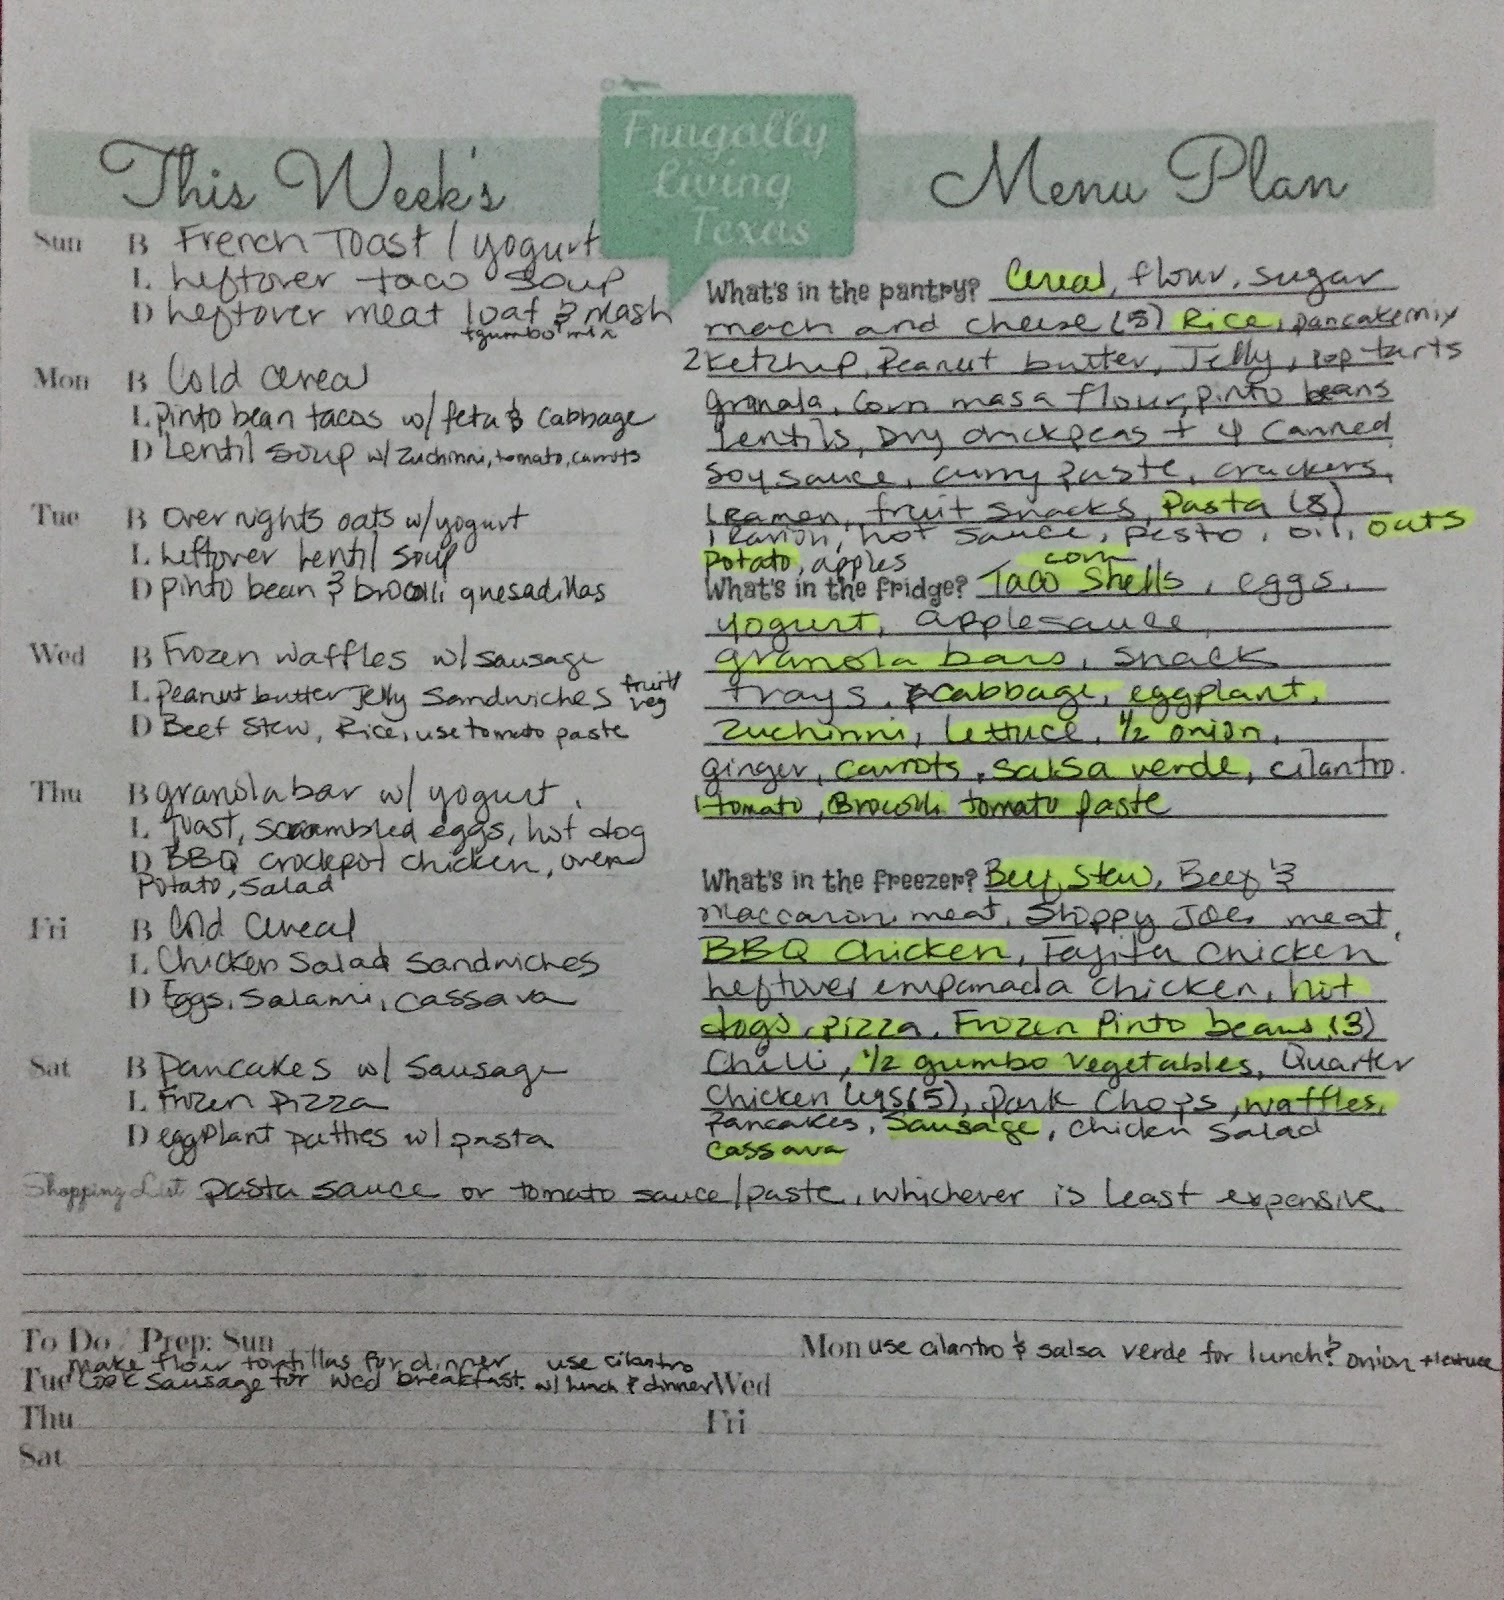 Frugally
Living
Texas
This Week's
Menu Plan
Sun B French Toast / yogurt
L Leftover taco soup
D Leftover meat loaf & mash
+gumbo mix
Mon B Cold cereal
L pinto bean tacos w/ feta & cabbage
D Lentil soup w/ zuchinni, tomato, carrots
Tue B Over nights oats w/ yogurt
L Leftover Lentil soup
D pinto bean & brocolli quesadillas
Wed B Frozen waffles w/ sausage
L peanut butter Jelly Sandwiches fruit/
veg
D Beef Stew, Rice, use tomato paste
Thu B granola bar w/ yogurt
L Toast, scrambled eggs, hot dog
D BBQ crockpot chicken, oven
Potato, salad
Fri B Cold Cereal
L Chicken Salad Sandwiches
D Eggs, Salami, Cassava
Sat B Pancakes w/ Sausage
L Frozen Pizza
D eggplant patties w/ pasta
What's in the pantry? Cereal, flour, sugar
mach and cheese (5) Rice, pancake mix
2 ketchup, Peanut butter, Jelly, pop tarts
granola, corn masa flour, pinto beans
lentils, Dry chickpeas + 4 canned
soy sauce, curry paste, crackers,
Ramen, fruit snacks, Pasta (8)
hot sauce, pesto, oil, oats
Potato, apples
corn
What's in the fridge? Taco Shells, eggs,
yogurt, applesauce,
granola bars, snack
trays, cabbage, eggplant,
Zuchinni, lettuce, 1/2 onion,
ginger, carrots, salsa verde, cilantro.
1 tomato, Brocolli tomato paste
What's in the freezer? Beef Stew, Beef &
maccaroni meat, Sloppy Joe meat
BBQ Chicken, Fajita Chicken
Leftover empanada chicken, hot
dogs, pizza, Frozen Pinto beans (3)
Chilli, 1/2 gumbo vegetables, Quarter
Chicken legs (5), Pork Chops, waffles,
Pancakes, Sausage, Chicken Salad
Cassava
Shopping List pasta sauce or tomato sauce/paste, whichever is least expensive
To Do / Prep: Sun
Mon use cilantro & salsa verde for lunch? onion + lettuce
make flour tortillas for dinner, use cilantro
Tue Cook sausage for Wed breakfast. w/ lunch & dinner
Wed
Thu
Fri
Sat